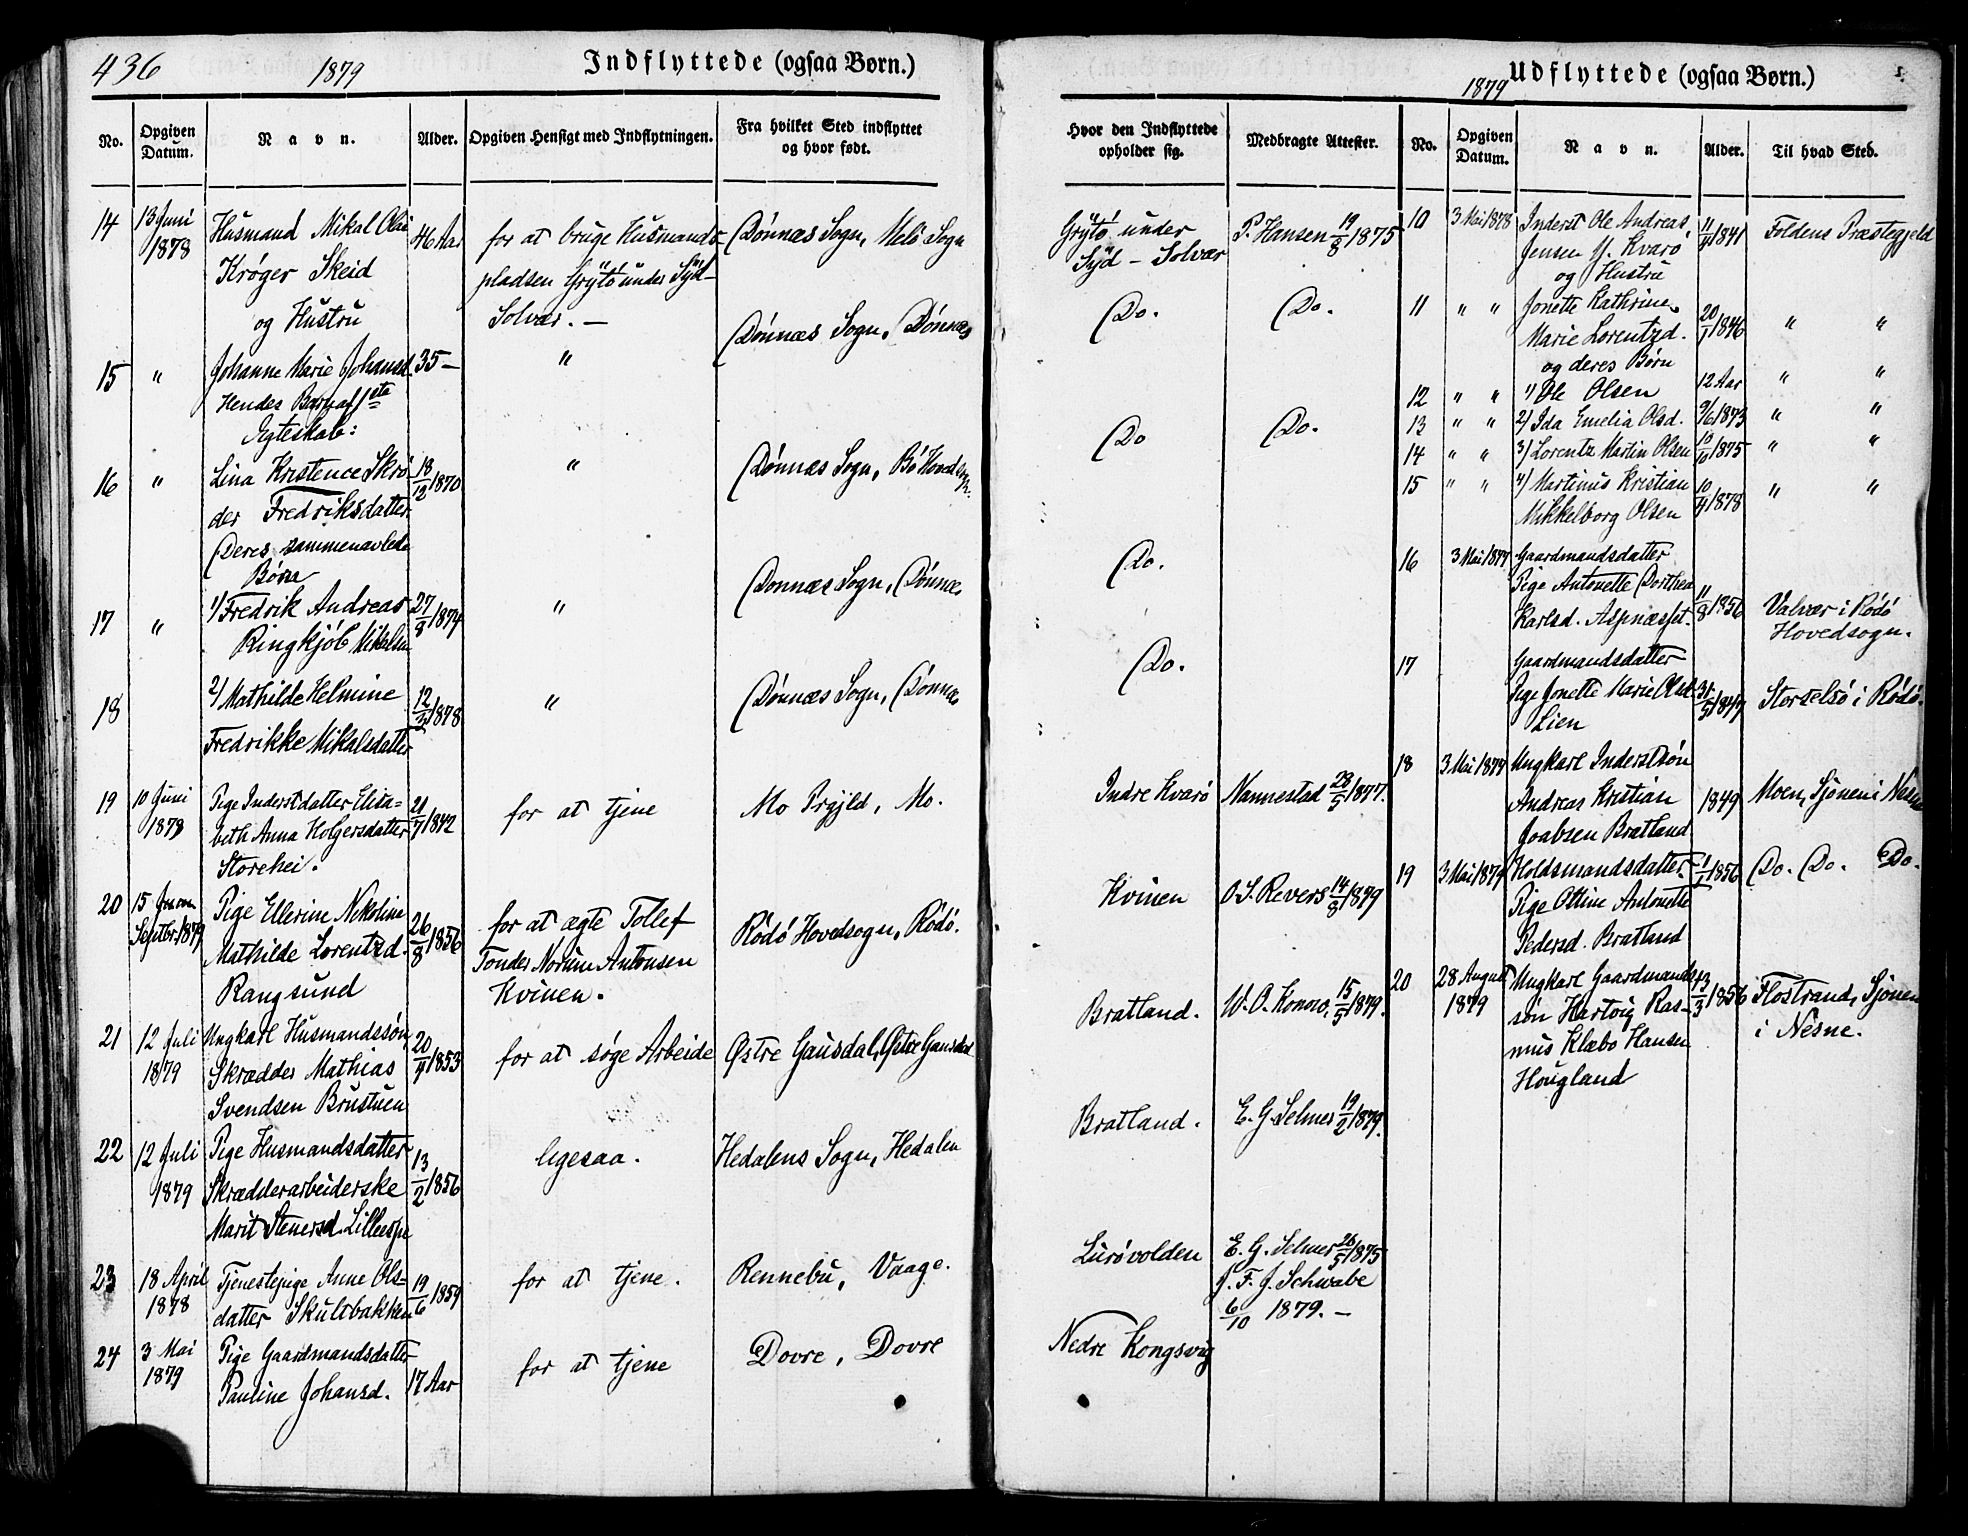 436
1879
Indflyttede (ogsaa Børn.)
No.
Opgiven Datum.
Navn.
Alder.
Opgiven Hensigt med Indflytningen.
Fra hvilket Sted indflyttet
og hvor født.
14 13 Juni Husmand Mikal Olai 46 Aar for at bruge Husmands- Dönnæs Sogn, Melö Sogn
1878 Kröger Skeid pladsen Grÿtö under Sÿd-
og Hustru Solvær. —
15 " Johanne Marie Johansd. 35 — " Dönnæs Sogn, Dönnæs
Hendes Barn af 1ste
Ægteskab:
16 " Lina Kristence Skrö- 18/12 1870 " Dönnæs Sogn, Bö Hovedsogn.
der Fredriksdatter
Deres sammenavlede
Börn
17 " 1) Fredrik Andreas 27/8 1874 " Donnæs Sogn, Dönnæs
Ringkjöb Mikalsen
18 2) Mathilde Helmine 12/3 1878 " Dönnæs Sogn, Dönnæs
Fredrikke Mikalsdatter
19 10 Juni Pige Inderstdatter Elisa- 21/7 1842 for at tjene Mo Prgjld, Mo.
1878 beth Anna Holgersdatter
Storehei.
20 15 Septbr. 1879 Pige Ellerine Nekoline 26/8 1856 for at ægte Tollef Rödö Hovedsogn, Rödö.
Mathilde Lorentzd. Tonder Norum Antonsen
Rangsund Kvinen.
21 12 Juli Ungkarl Husmandssön 20/4 1853 for at söge Arbeide Østre Gausdal, Østre Gausdal
1879 Skrædder Mathias
Svendsen Brustuen
22 12 Juli Pige Husmandsdatter 13/2 1856 ligesaa. Hedalens Sogn, Hedalen
1879 Skrædderarbeiderske
Marit Stenersd.
23 18 April Tjenestepige Anne Ols- 19/6 1859 for at tjene. Rennebu, Vaage.
1878 datter Skultbakken
24 3 Mai Pige Gaardmandsdatter 17 Aar for at tjene Dovre, Dovre
1879 Pauline Johansd.
1879
Udflyttede (ogsaa Børn.)
Hvor den Indflyttede
opholder sig.
Medbragte Attester.
No.
Opgiven Datum.
Navn.
Alder.
Til hvad Sted.
Grÿtö under P. Hansen 19/8 1875
Sÿd - Solvær
Do. Do.
Do Do.
Do.
Do.
Indre Kvarö Nannestad 28/5 1877.
Kvinen O. S. Revers 14/8 1879
Bratland. W. O. 15/5 1879.
Bratland. E. G. Selmer 19/2 1879.
Lurövolden E. G. Selmer 26/5 1875
J. F. J. Schwabe
6/10 1879. —
Nedre Kongsvig
10 3 Mai 1878 Inderst Ole Andreas 11/4 1841 Foldens Præstegjeld
Jensen Y. Kvarö
og Hustru
11 " " Jonette Kathrine 20/1 1846 " "
Marie Lorentzd.
og deres Börn
12 " " 1) Ole Olsen 12 Aar " "
13 " " 2) Ida Emelia Olsd. 9/6 1873 " "
14 " " 3) Lorentz Martin Olsen 10/10 1875 " "
15 " " 4) Martinus Kristian 10/4 1878 " "
Mikkelborg Olsen
16 3 Mai 1877 Gaardmandsdatter
Pige Antonette Dorthea 11/8 1856 Valvær i Rödö
Karlsd. Aspnæsset. Hovedsogn.
17 Gaardmandsdatter
Pige Jonette Marie Olsd. 31/5 1847 Storselsö i Rödö.
Lien
18 3 Mai 1879 Ungkarl Inderstsön
Andreas Kristian 1849 Moen, Sjonen i Nesne
Joabsen Bratland
19 3 Mai 1879 Holdsmandsdatter 1/1 1856 Do. Do. Do.
Pige Olline Antonette
Pedersd. Bratland
20 28 August Ungkarl Gaardmands- 13/3 1856 Flostrand, Sjonen
1879 sön Hartvig Ras- i Nesne.
mus Klæbo Hansen
Hougland